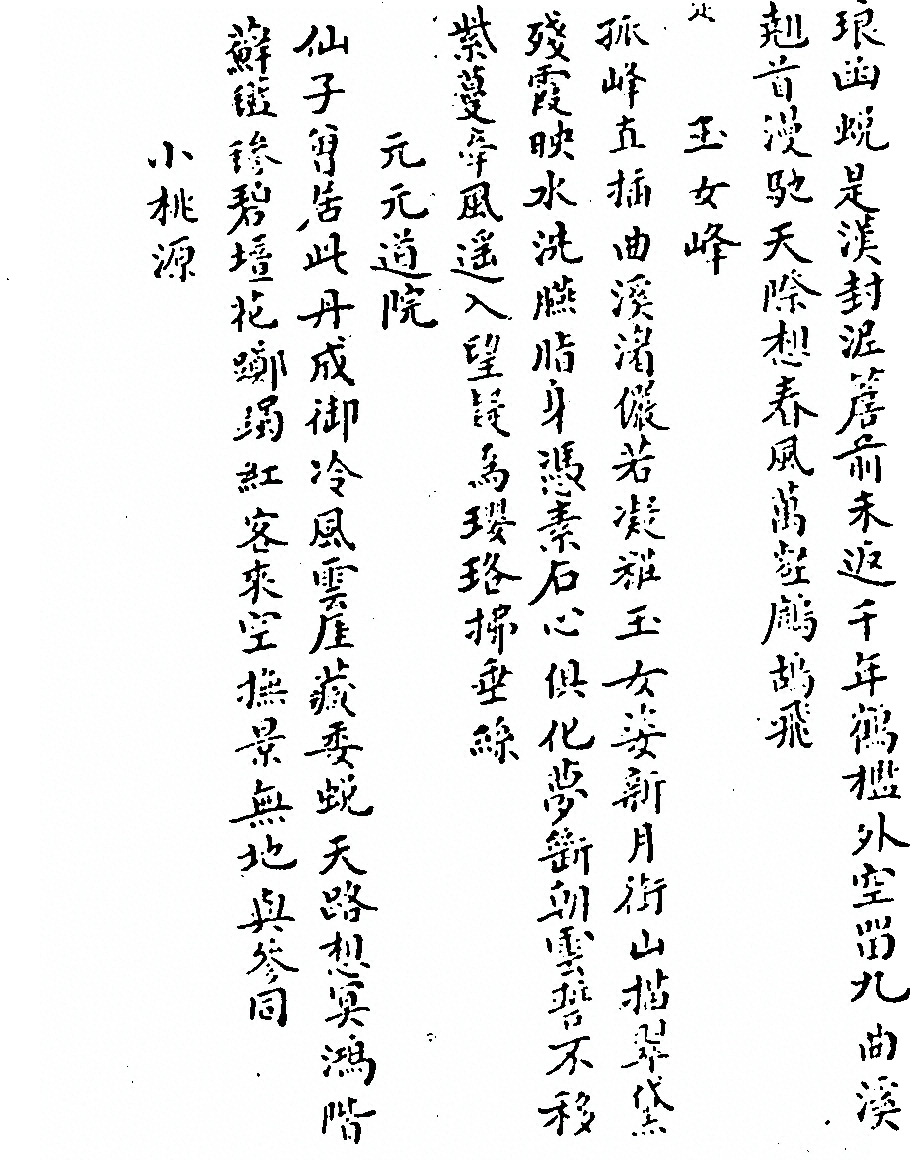 琅函蛻是漢封泥簷前未返千年鶴檻外空留九曲溪
翹首漫馳天際想春風萬壑鷓鴣飛
玉女峰
孤峰直插曲溪渚儼若凝粧玉女姿新月銜山描翠黛
殘霞映水洗臙脂身憑素石心俱化夢斷朝雲誓不移
紫蔓牽風遥入望疑為瓔珞拂垂絲
元元道院
仙子曾居此丹成御冷風雲崖藏委蛻天路想冥鴻階
蘚缬碧壇花躑躅紅客來空撫景無地與參同
小桃源